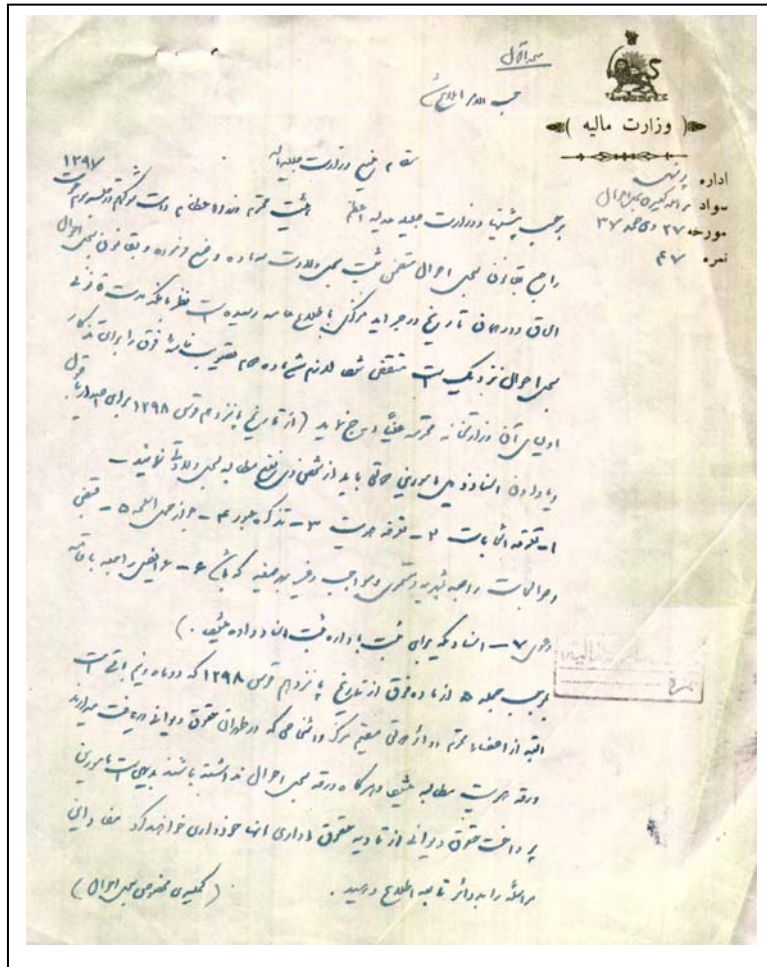 وزارت مالیه
اداره پرسنل
سواد مراسله کمیسری سجل احوال
مورخه ۲۷
نمره ۴۷
مقام رفیع وزارت جلیله مالیه
۱۲۹۷
بر حسب پیشنهاد وزارت جلیله عدلیه اعظم هیئت محترم وزراء عظام
راجع بقانون سجل احوال متضمن ثبت سجل ولادت ماده وضع و بقانون سجل احوال
الحاق و در همان تاریخ در جراید مرکزی باطلاع عامه رسیده است نظر باینکه مدت قانونی
سجل احوال نزدیک است فوق را برای تذکار
اولیای آن وزارتخانه محترمه عیناً درج نماید (از تاریخ پانزدهم قوس ۱۲۹۸ برای اصدار یا قبول
و یا دادن اسناد ذیل مامورین دولتی باید از شخص ذی نفع مطالبه سجل ولادت نمایند -
۱- تعرفه انتخابات ۲- ورقه هویت ۳- تذکره عبور ۴- جواز حمل اسلحه ۵- قبض
و حوالجات راجعه بشهریه و مستمری و مواجب و غیره
دعوی ۷- اسنادیکه برای ثبت باداره ثبت اسناد داده میشود .)
بر حسب جمله ۵ از ماده فوق از تاریخ پانزدهم قوس ۱۲۹۸ که دو ماه و نیم باقی است
البته از اعضاء محترم دوائر دولتی مقیم مرکز و اشخاصی که در طهران حقوق دیوانی دریافت میدارند
ورقه هویت مطالبه میشود و هر گاه ورقه سجل احوال نداشته باشند بدیهی است مامورین
پرداخت حقوق دیوانی از تادیه حقوق اداری آنها خودداری خواهند کرد
مراسله را بدوائر تابعه اطلاع دهید . (کمیسری عمومی سجل احوال)
نمره